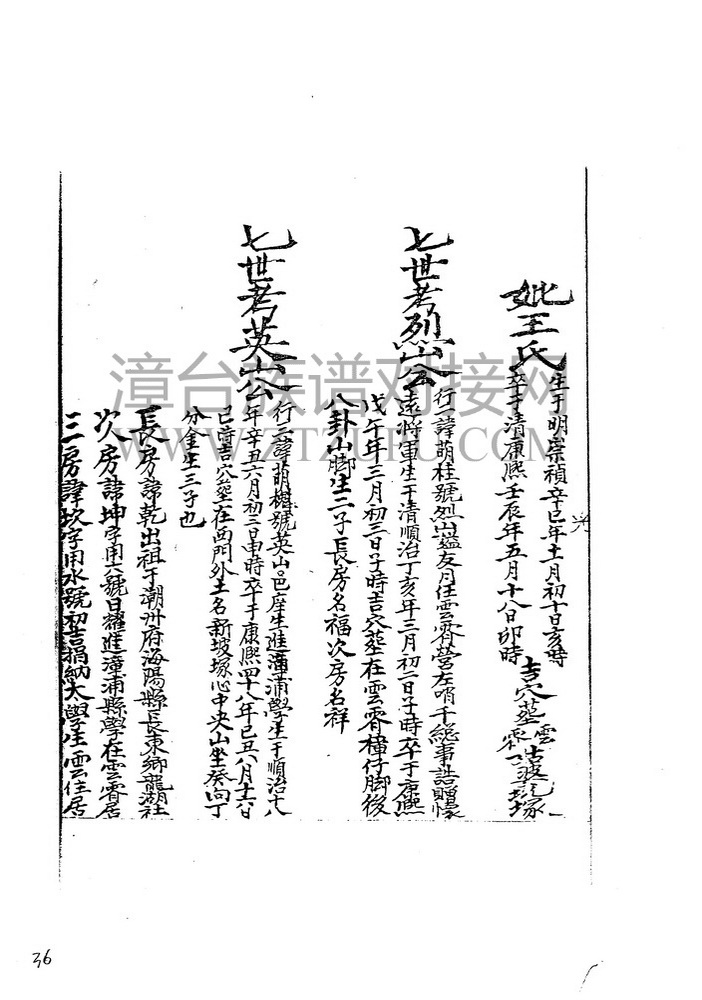 妣王氏
生于明崇禎辛巳年十一月初十日亥時
卒于清康熙壬辰年五月十八日卯時
吉穴葬雲霄
七世考烈山公
行一諱萌桂號烈山謚友月任雲霄營左哨千總事誥贈懷
遠將軍生于清順治丁亥年三月初二日子時卒于康熙
戊午年三月初三日子時吉穴葬在雲霄樟仔脚後
八卦山脚生二子長房名福次房名祥
七世考英山公
行三諱萌樾號英山邑庠生進漳浦學生于順治十八
年辛丑六月初三日申時卒于康熙四十八年己丑八月十六日
巳時吉穴葬在西門外土名新坡塚心中央山坐癸向丁
分金生三子也
長房諱乾出祖于潮州府海陽縣長東鄉龍湖社
次房諱坤字用六號日耀進漳浦縣學在雲霄居
三房諱坎字用水號初吉捐納大學生雲住居
漳台族谱对接网
WWW.ZTZUPU.COM
36